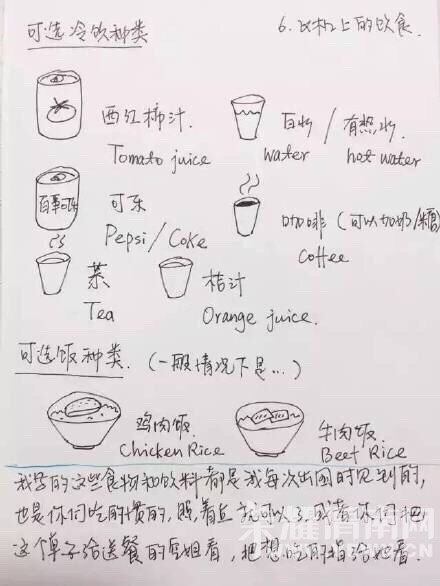 可选冷饮种类
6. 飞机上的饮食.
西红柿汁.
Tomato juice
白水 / 有热水.
water
hot water
百事可乐
可乐
Pepsi / Coke
咖啡 (可以加奶/糖)
Coffee
茶
Tea
桔汁
Orange juice.
可选饭种类. (一般情况下是...)
鸡肉饭
Chicken Rice
牛肉饭.
Beef Rice
我写的这些食物和饮料都是我每次出国时见到的,
也是你们吃的惯的, 照着点就可以了, 或者你们把
这个单子给送餐的空姐看, 把想吃的指给她看.